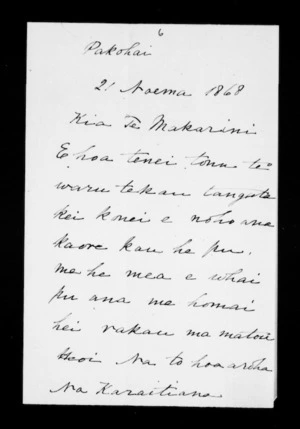 6
Pakohai
21 Noema 1868
Kia Te Makarini
E hoa tenei tonu te
waru tekau tangata
kei konei e noho ana
kaore kau he pu,
me he mea e whai
pu ana me homai
hei rakau ma matou
Heoi Na to hoa aroha
Na Karaitiana